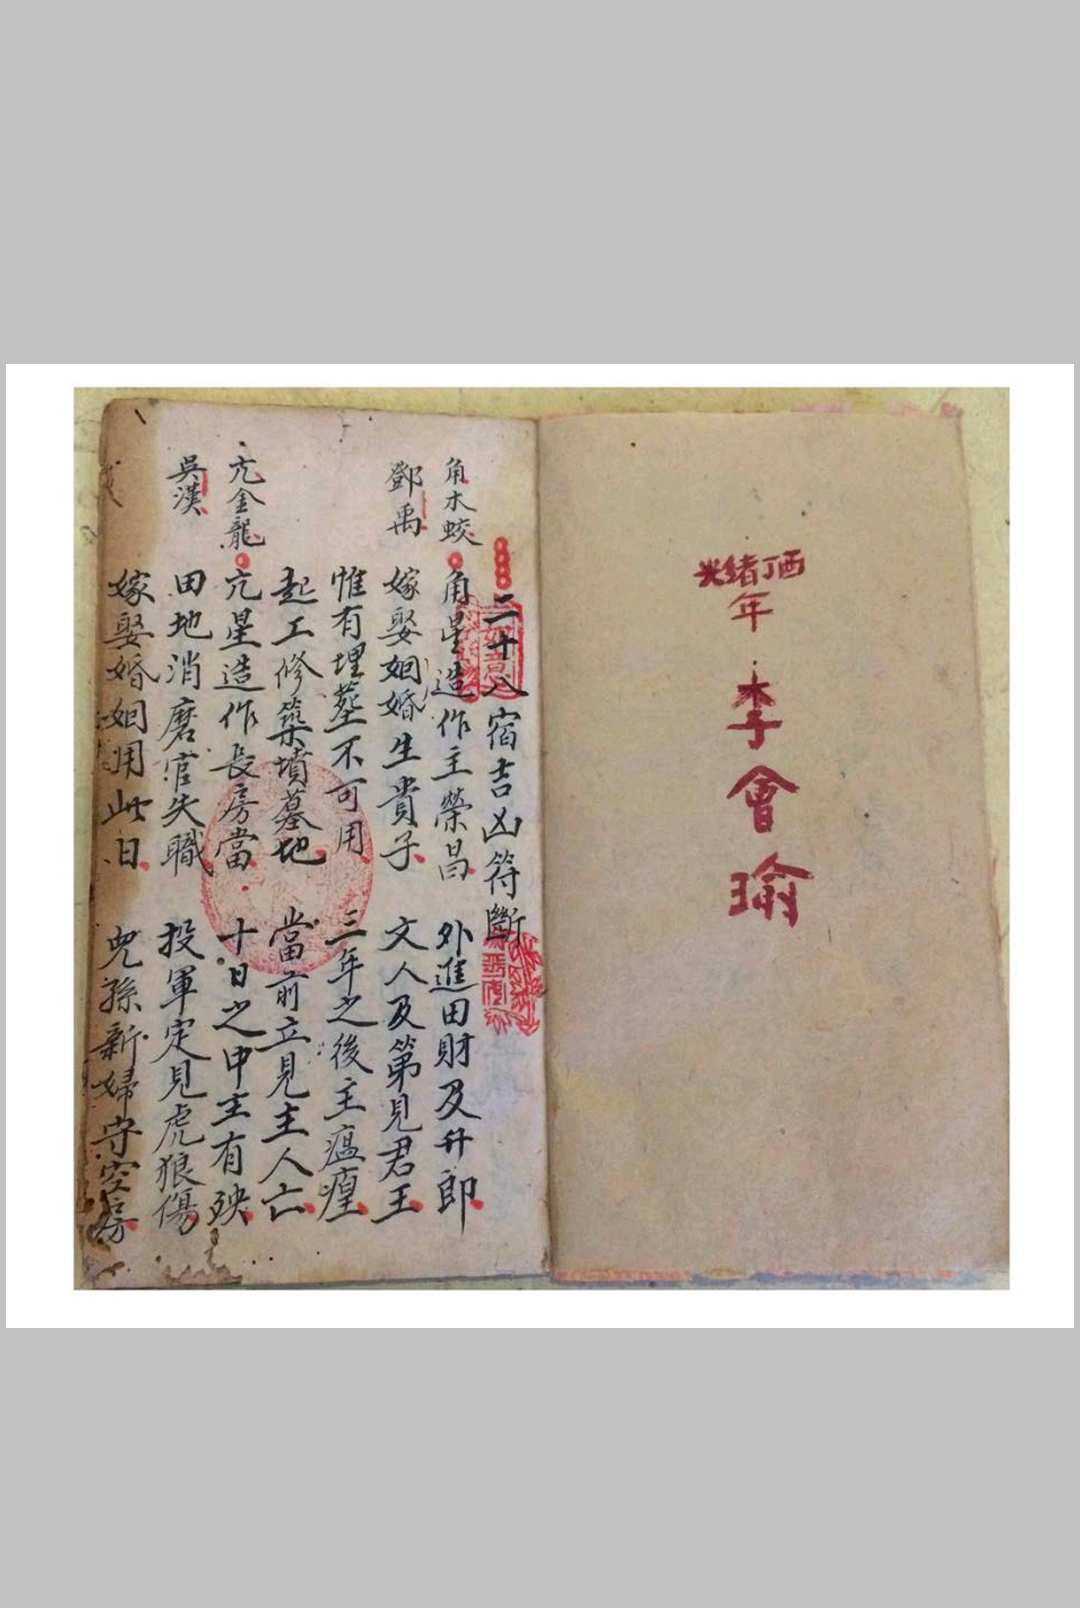 光緒丁酉
年
李會瑜
二十八宿吉凶符斷
角木蛟
角星造作主榮昌 外進田財及升郎
鄧禹
嫁娶姻婚生貴子 文人及第見君王
惟有埋葬不可用 三年之後主瘟瘟
起工修築墳墓地 當前立見主人亡
亢金龍
亢星造作長房當 十日之中主有殃
吳漢
田地消磨官失職 投軍定見虎狼傷
嫁娶婚姻用此日 兒孫新婦守空房